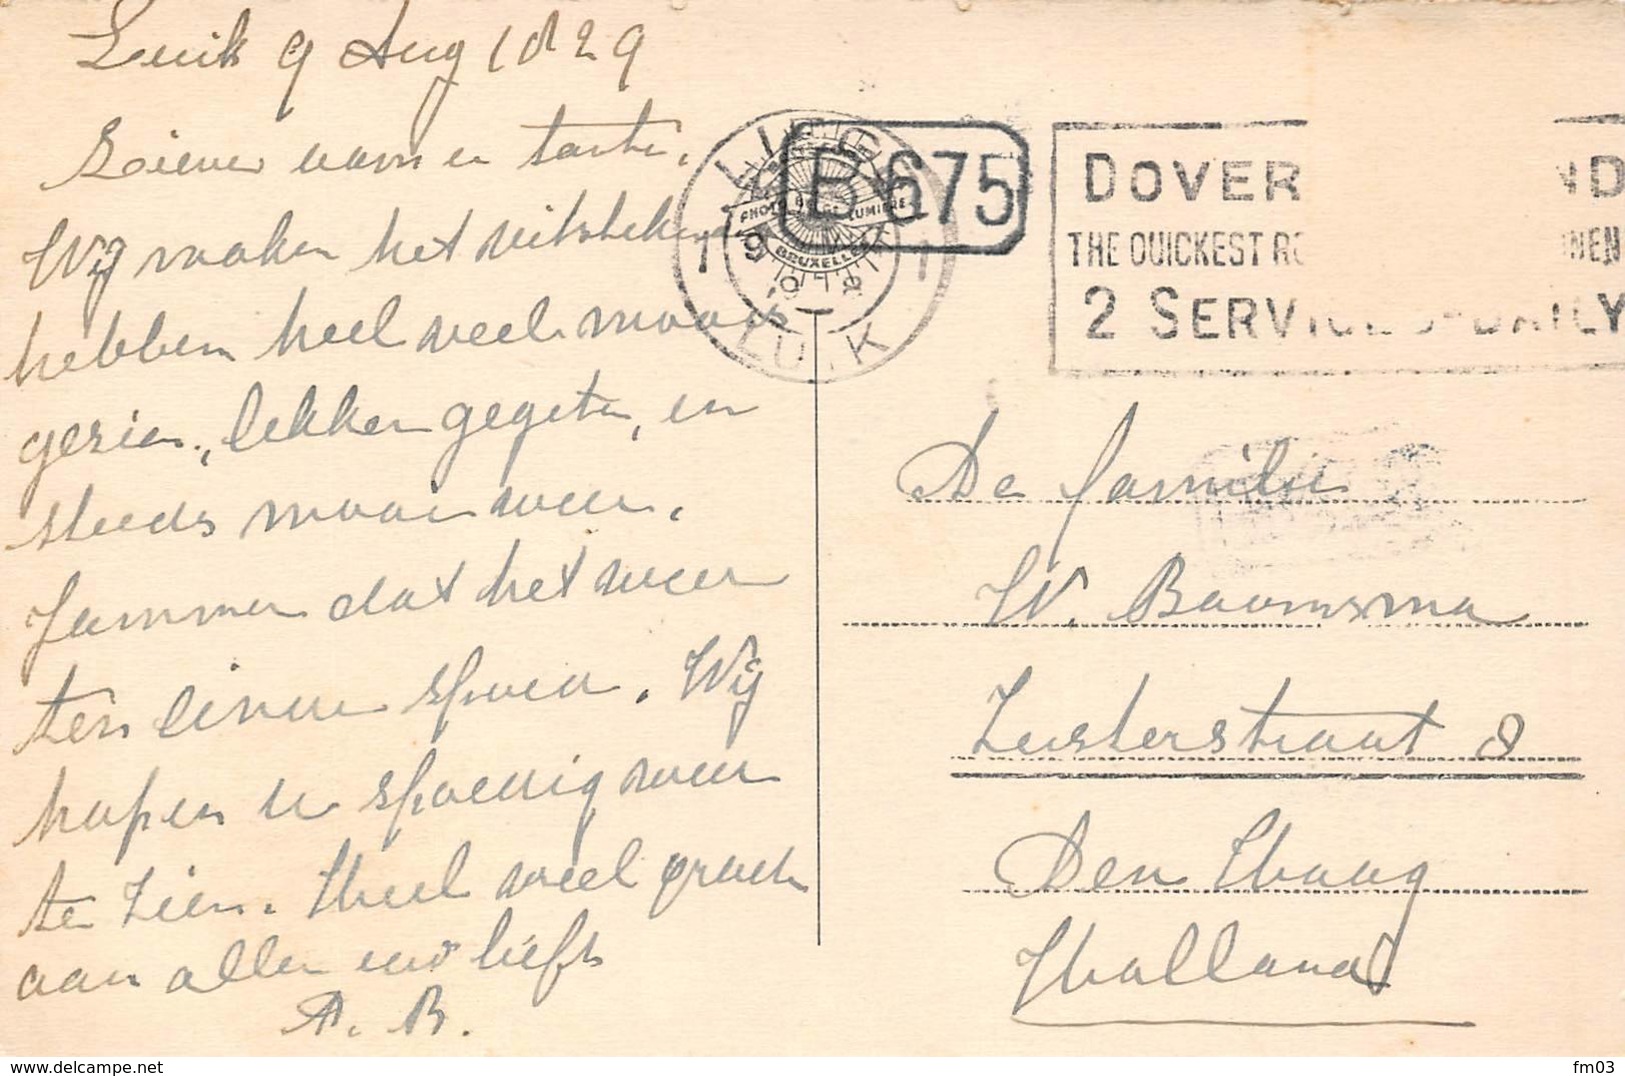 Luik 9 Aug 1929
Lieve oom en tante.
Wij maken het uitstekend
hebben heel veel moois
gezien, lekker gegeten, en
steeds mooi weer.
Jammer dat het weer
ten einde spoed. Wij
hopen u spoedig weer
te zien. Heel veel groeten
aan allen uw liefh
A. B.
LIEGE
B 675
PHOTO BELGE LUMIERE
BRUXELLES
LUIK
DOVER ND
THE QUICKEST RO
2 SERVICES DAILY
De familie
W. Boomsma
Zusterstraat 8
Den Haag
Holland
www.delcampe.net
fm03